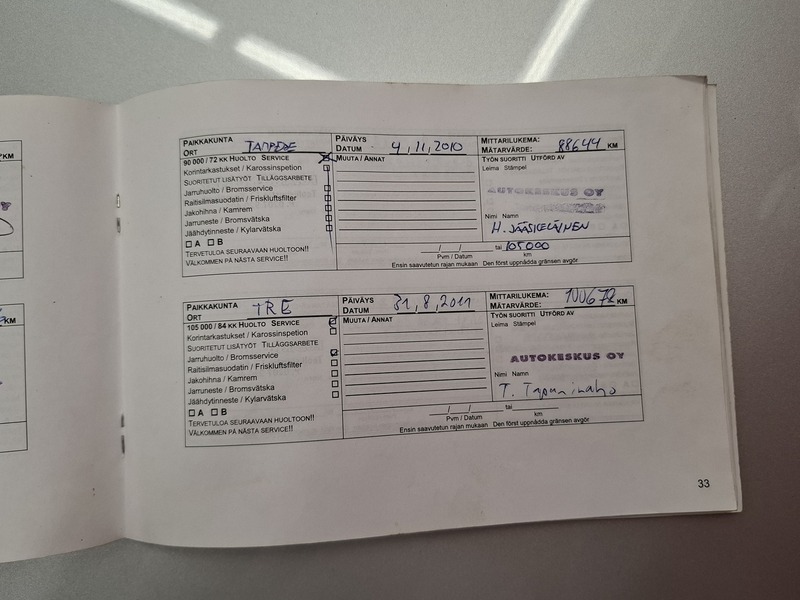 KM
PAIKKAKUNTA TAMPERE PÄIVÄYS 4,11,2010 MITTARILUKEMA: 88644 KM
ORT DATUM MÄTARVÄRDE:
90 000 / 72 KK HUOLTO SERVICE MUUTA / ANNAT TYÖN SUORITTI UTFÖRD AV
Korintarkastukset / Karossinspetion Leima Stämpel
SUORITETUT LISÄTYÖT TILLÄGGSARBETE
Jarruhuolto / Bromsservice AUTOKESKUS OY
Raitisilmasuodatin / Friskluftsfilter
Jakohihna / Kamrem
Jarruneste / Bromsvätska Nimi Namn
Jäähdytinneste / Kylarvätska H. JÄÄSKELÄINEN
A B
TERVETULOA SEURAAVAAN HUOLTOON!! / / tai 105000
VÄLKOMMEN PÅ NÄSTA SERVICE!! Pvm / Datum km
Ensin saavutetun rajan mukaan Den först uppnådda gränsen avgör
KM
PAIKKAKUNTA TRE PÄIVÄYS 31,8,2011 MITTARILUKEMA: 100672 KM
ORT DATUM MÄTARVÄRDE:
105 000 / 84 KK HUOLTO SERVICE MUUTA / ANNAT TYÖN SUORITTI UTFÖRD AV
Korintarkastukset / Karossinspetion Leima Stämpel
SUORITETUT LISÄTYÖT TILLÄGGSARBETE
Jarruhuolto / Bromsservice AUTOKESKUS OY
Raitisilmasuodatin / Friskluftsfilter
Jakohihna / Kamrem Nimi Namn
Jarruneste / Bromsvätska T.
Jäähdytinneste / Kylarvätska
A B / / tai
TERVETULOA SEURAAVAAN HUOLTOON!! Pvm / Datum km
VÄLKOMMEN PÅ NÄSTA SERVICE!! Ensin saavutetun rajan mukaan Den först uppnådda gränsen avgör
33